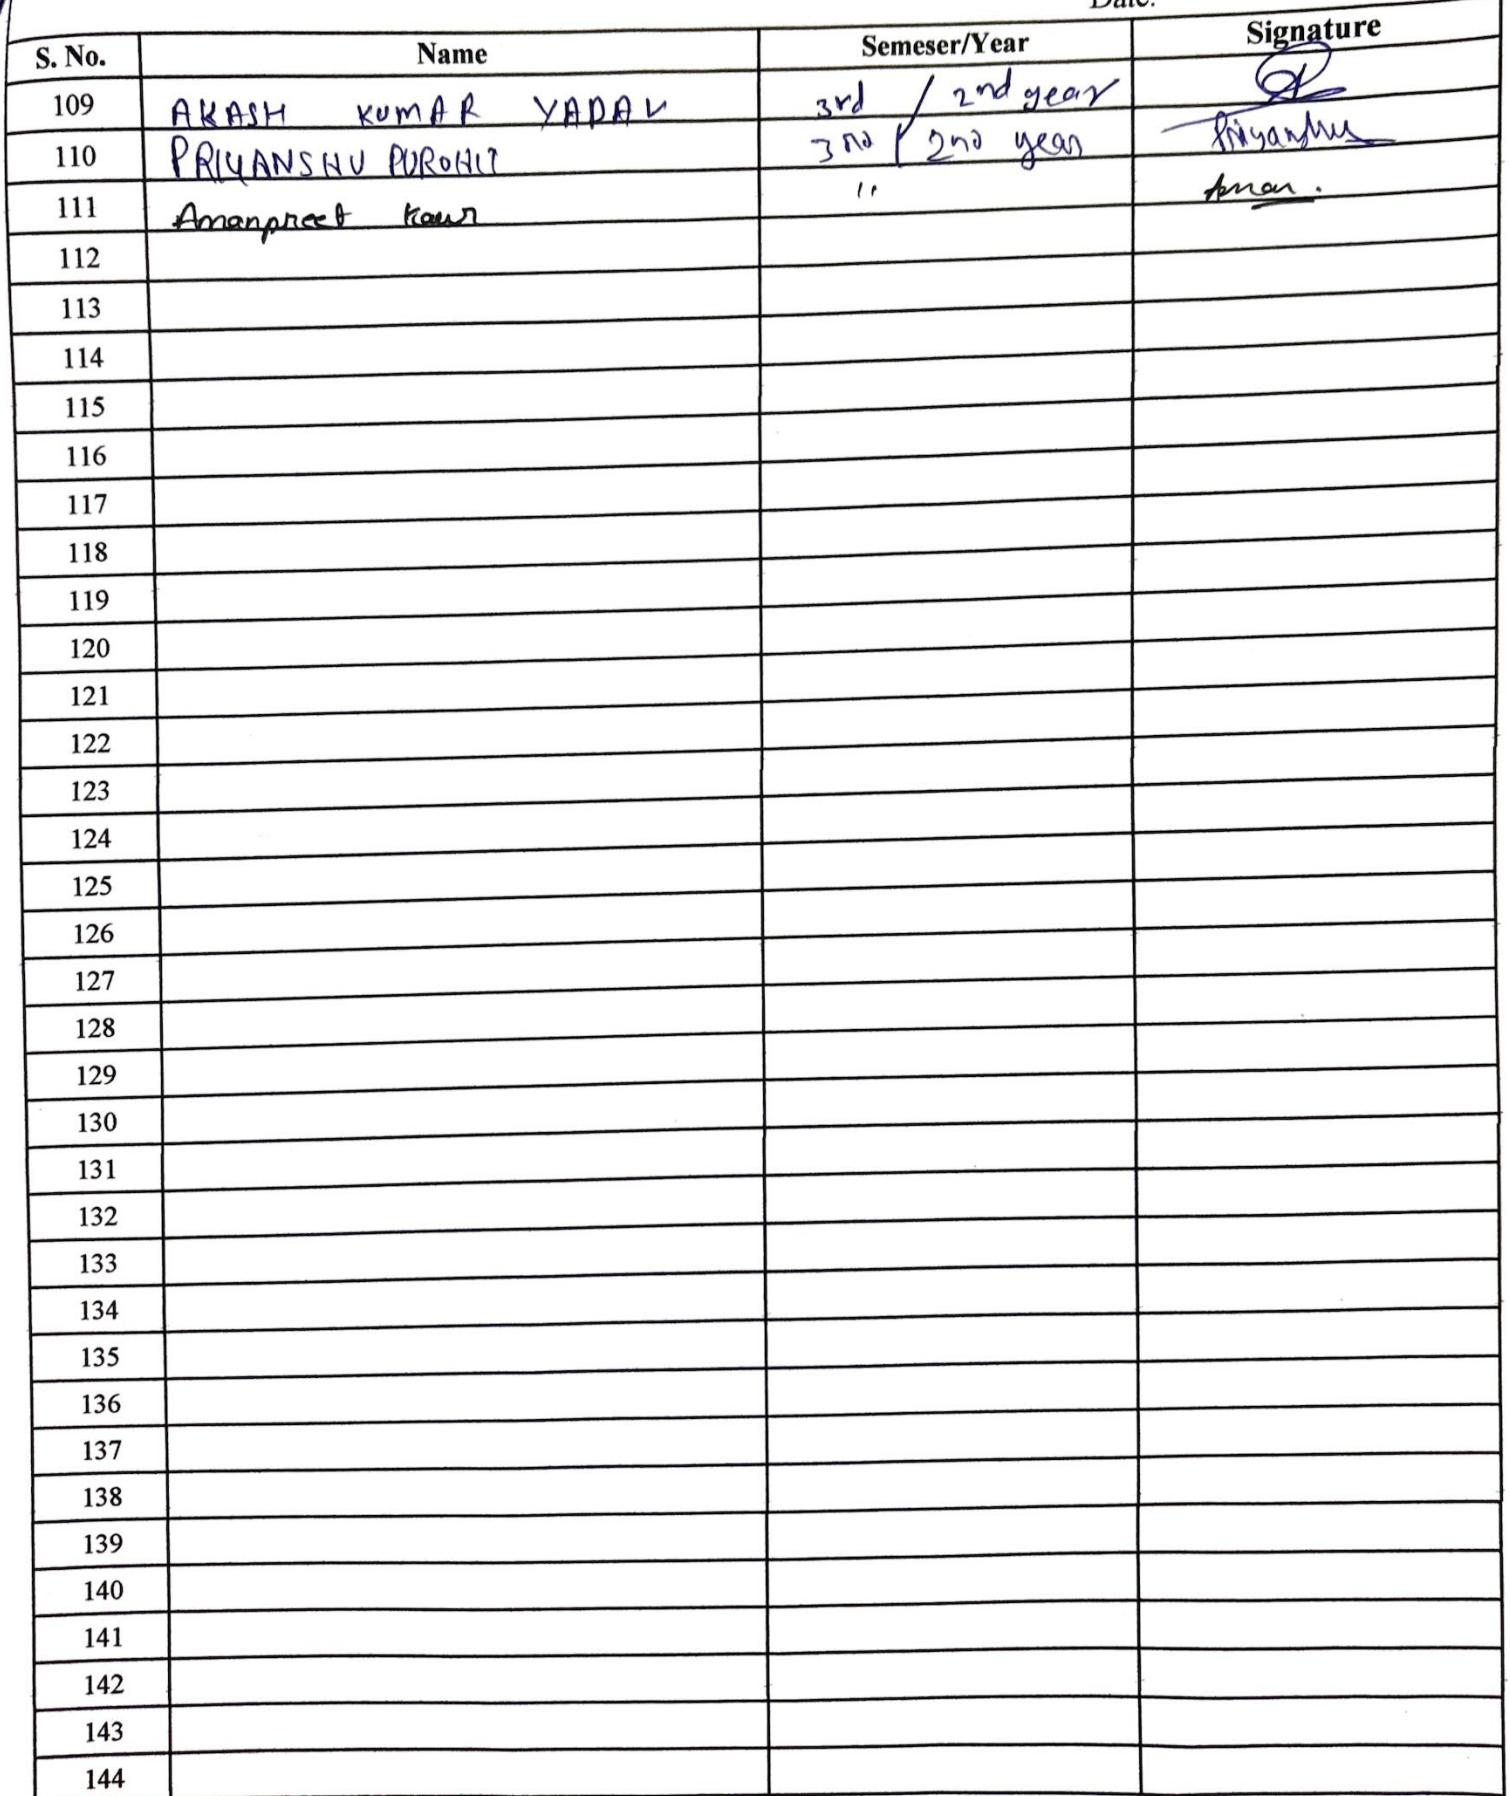 Date:
S. No. Name Semeser/Year Signature
109 AKASH KUMAR YADAV 3rd / 2nd year
110 PRIYANSHU PUROHIT 3rd / 2nd year Priyanshu
111 Amanpreet kaur " Aman.
112
113
114
115
116
117
118
119
120
121
122
123
124
125
126
127
128
129
130
131
132
133
134
135
136
137
138
139
140
141
142
143
144